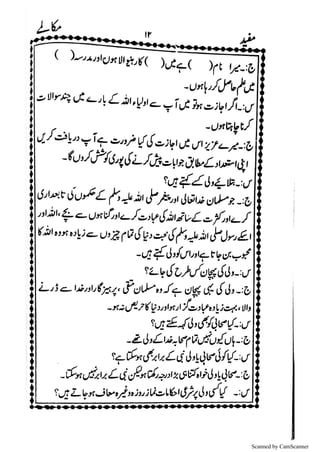 مفید
۱۲
مکالے
ج:۔ میرا نام ( ) ہے میں ( ) کا رہنے والا ہوں اور مدرسہ ( )
میں علم حاصل کر رہا ہوں۔
س:۔ اگر اجازت ہو تو میں آپ سے اولیاء اللہ کے بارے میں چند سوالات
کرنا چاہتا ہوں۔
ج:۔ میرے عزیز اس میں اجازت کی کیا ضرورت ہے آپ دریافت کریں
اپنی استعداد کے مطابق جوابات پیش کرنے کی پوری کوشش کروں گا۔
س:۔ بتلایئے ولی کسے کہتے ہیں؟
ج:۔ جو مسلمان خدا تعالی اور پیغمبر صلی اللہ علیہ وسلم کے حکموں کی تابعداری
کرے اور کثرت کے ساتھ اللہ کی عبادت کرے اور گناہوں سے بچے، اللہ اور
اسکے رسول صلی اللہ علیہ وسلم کی محبت دنیا کی تمام چیزوں سے زیادہ ہو وہ اللہ کا
محبوب بن جاتا ہے اور اس کو ولی کہتے ہیں۔
س:۔ ولی کی پہچان کس طرح کی جائے؟
ج:۔ ولی کی یہی پہچان ہے کہ وہ مسلمان متقی، پرہیزگار اور خدا سے ڈرنے
والا، بہت زیادہ عبادت گزار ہو اور دنیا کا حریص نہ ہو۔
س:۔ کیا صحابی کو بھی ولی کہہ سکتے ہیں؟
ج:۔ ہاں کیوں نہیں تمام صحابہ خدا کے ولی تھے۔
س:۔ کیا کوئی صحابی یا ولی نبی کے برابر بھی ہو سکتا ہے؟
ج:۔ صحابی یا ولی خواہ کتنا ہی بڑا درجہ رکھتا ہو لیکن نبی کے برابر نہیں ہو سکتا۔
س:۔ کیا کسی ولی پر شرعی احکامات نماز روزہ وغیرہ معاف ہو جاتے ہیں؟
Scanned by CamScanner